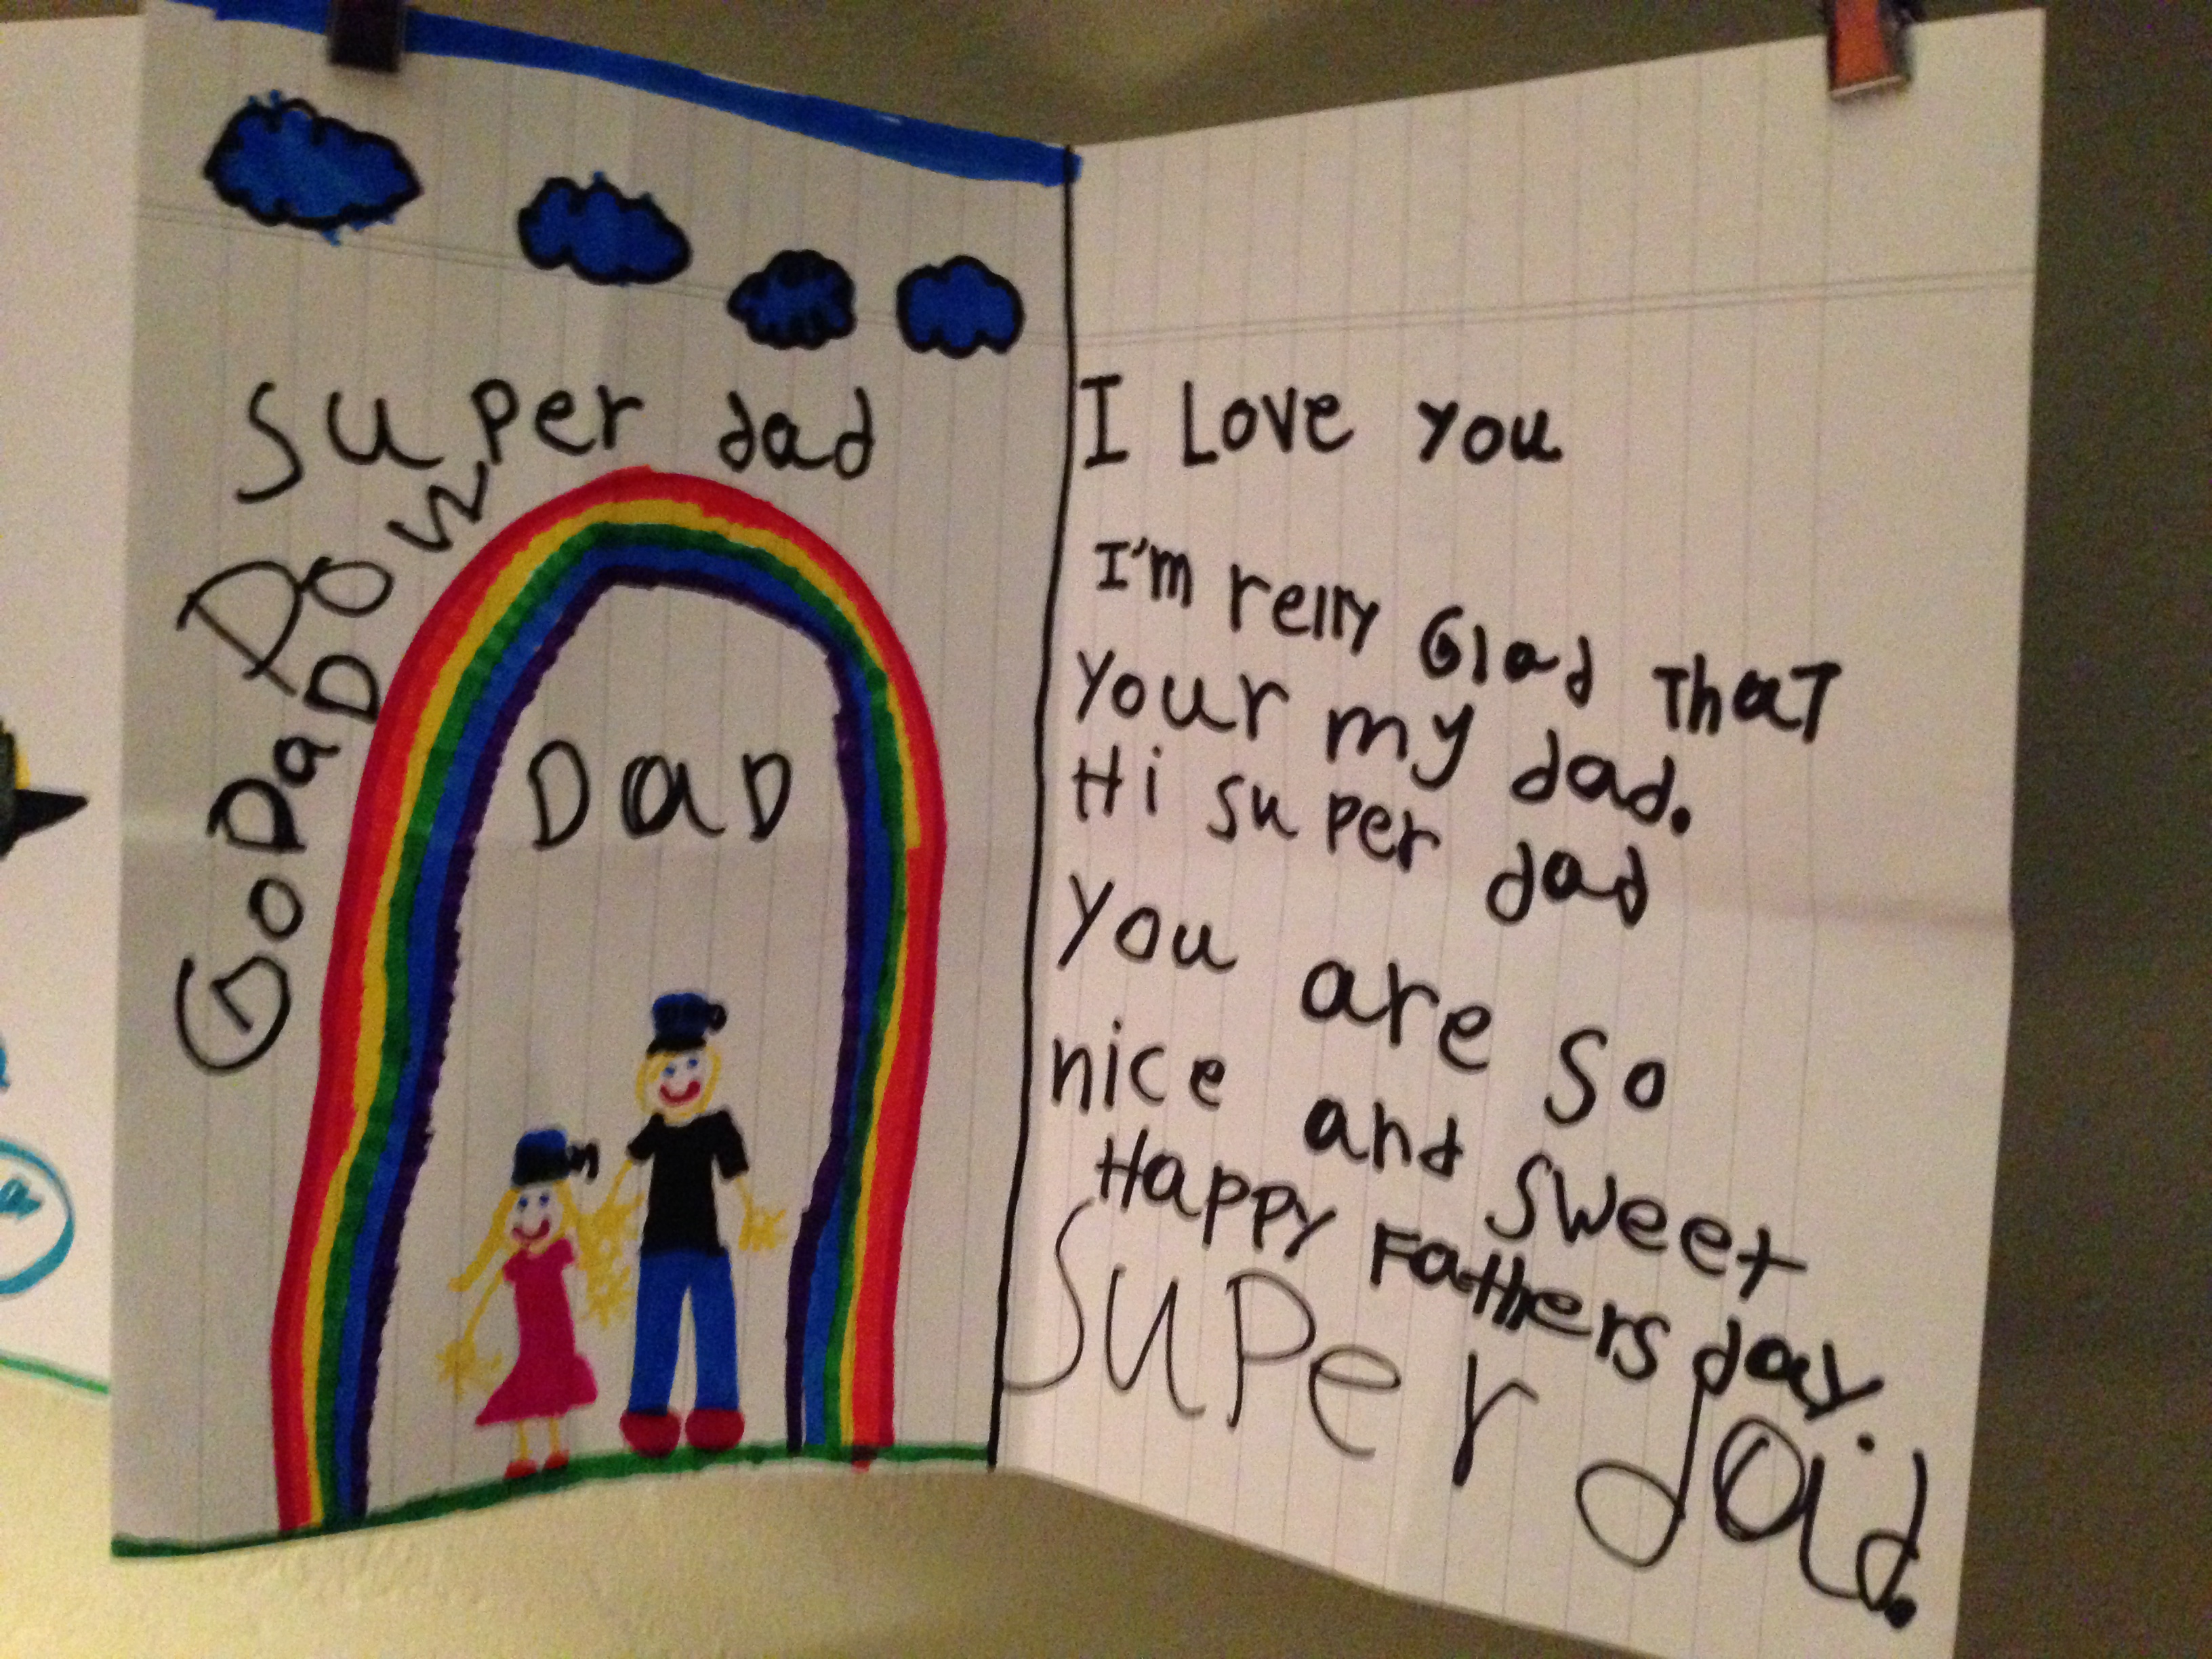 super dad
GoDaD
POW
DaD
I Love you
I'm relly Glad ThaT
your my dad.
Hi super dad
you are so
nice and sweet
Happy Fathers day.
super dad.